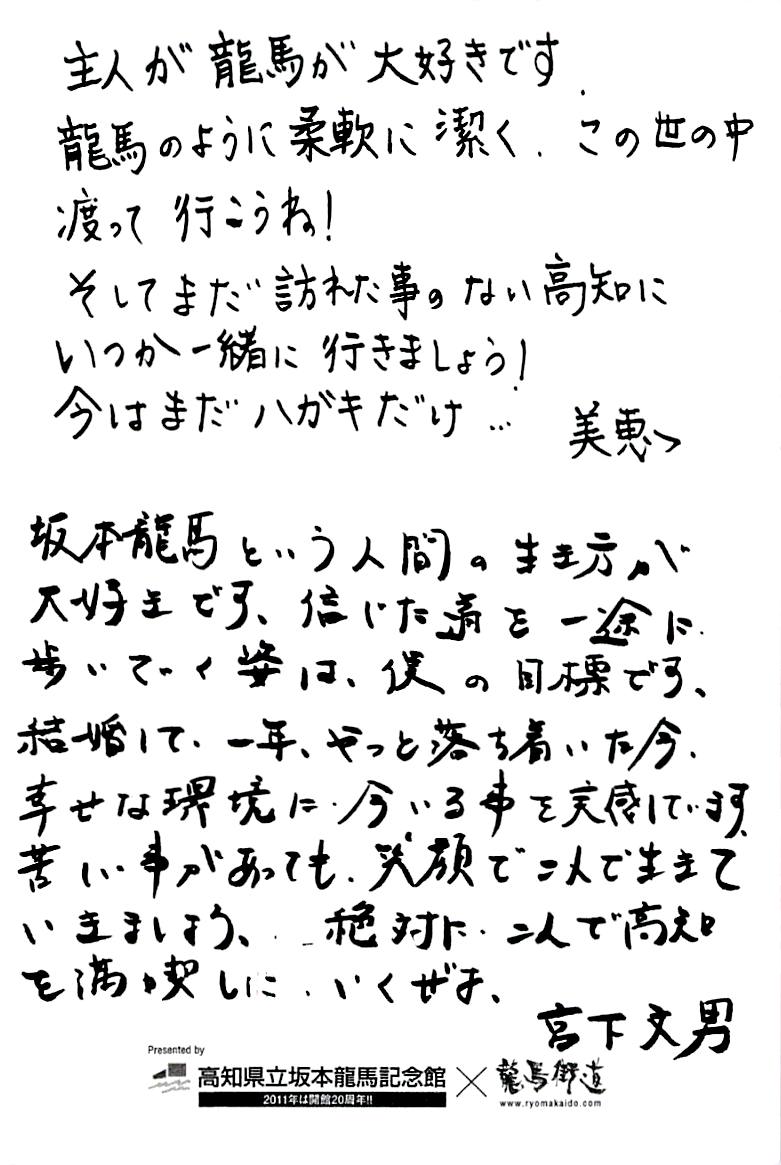 主人が龍馬が大好きです.
龍馬のように柔軟に潔く、この世の中
渡って行こうね!
そしてまだ訪れた事のない高知に
いつか一緒に行きましょう!
今はまだハガキだけ…
美恵
坂本龍馬という人間の生き方が
大好きです、信じた道を一途に
歩いていく姿は、僕の目標です、
結婚して、一年、やっと落ち着いた今、
幸せな環境に今いる事を実感しています、
苦しい事があっても、笑顔で二人で生きて
いきましょう、絶対に二人で高知
を満喫しに、いくぜよ、
宮下文男
Presented by
高知県立坂本龍馬記念館 × 龍馬街道
2011年は開館20周年!!
www.ryomakaido.com